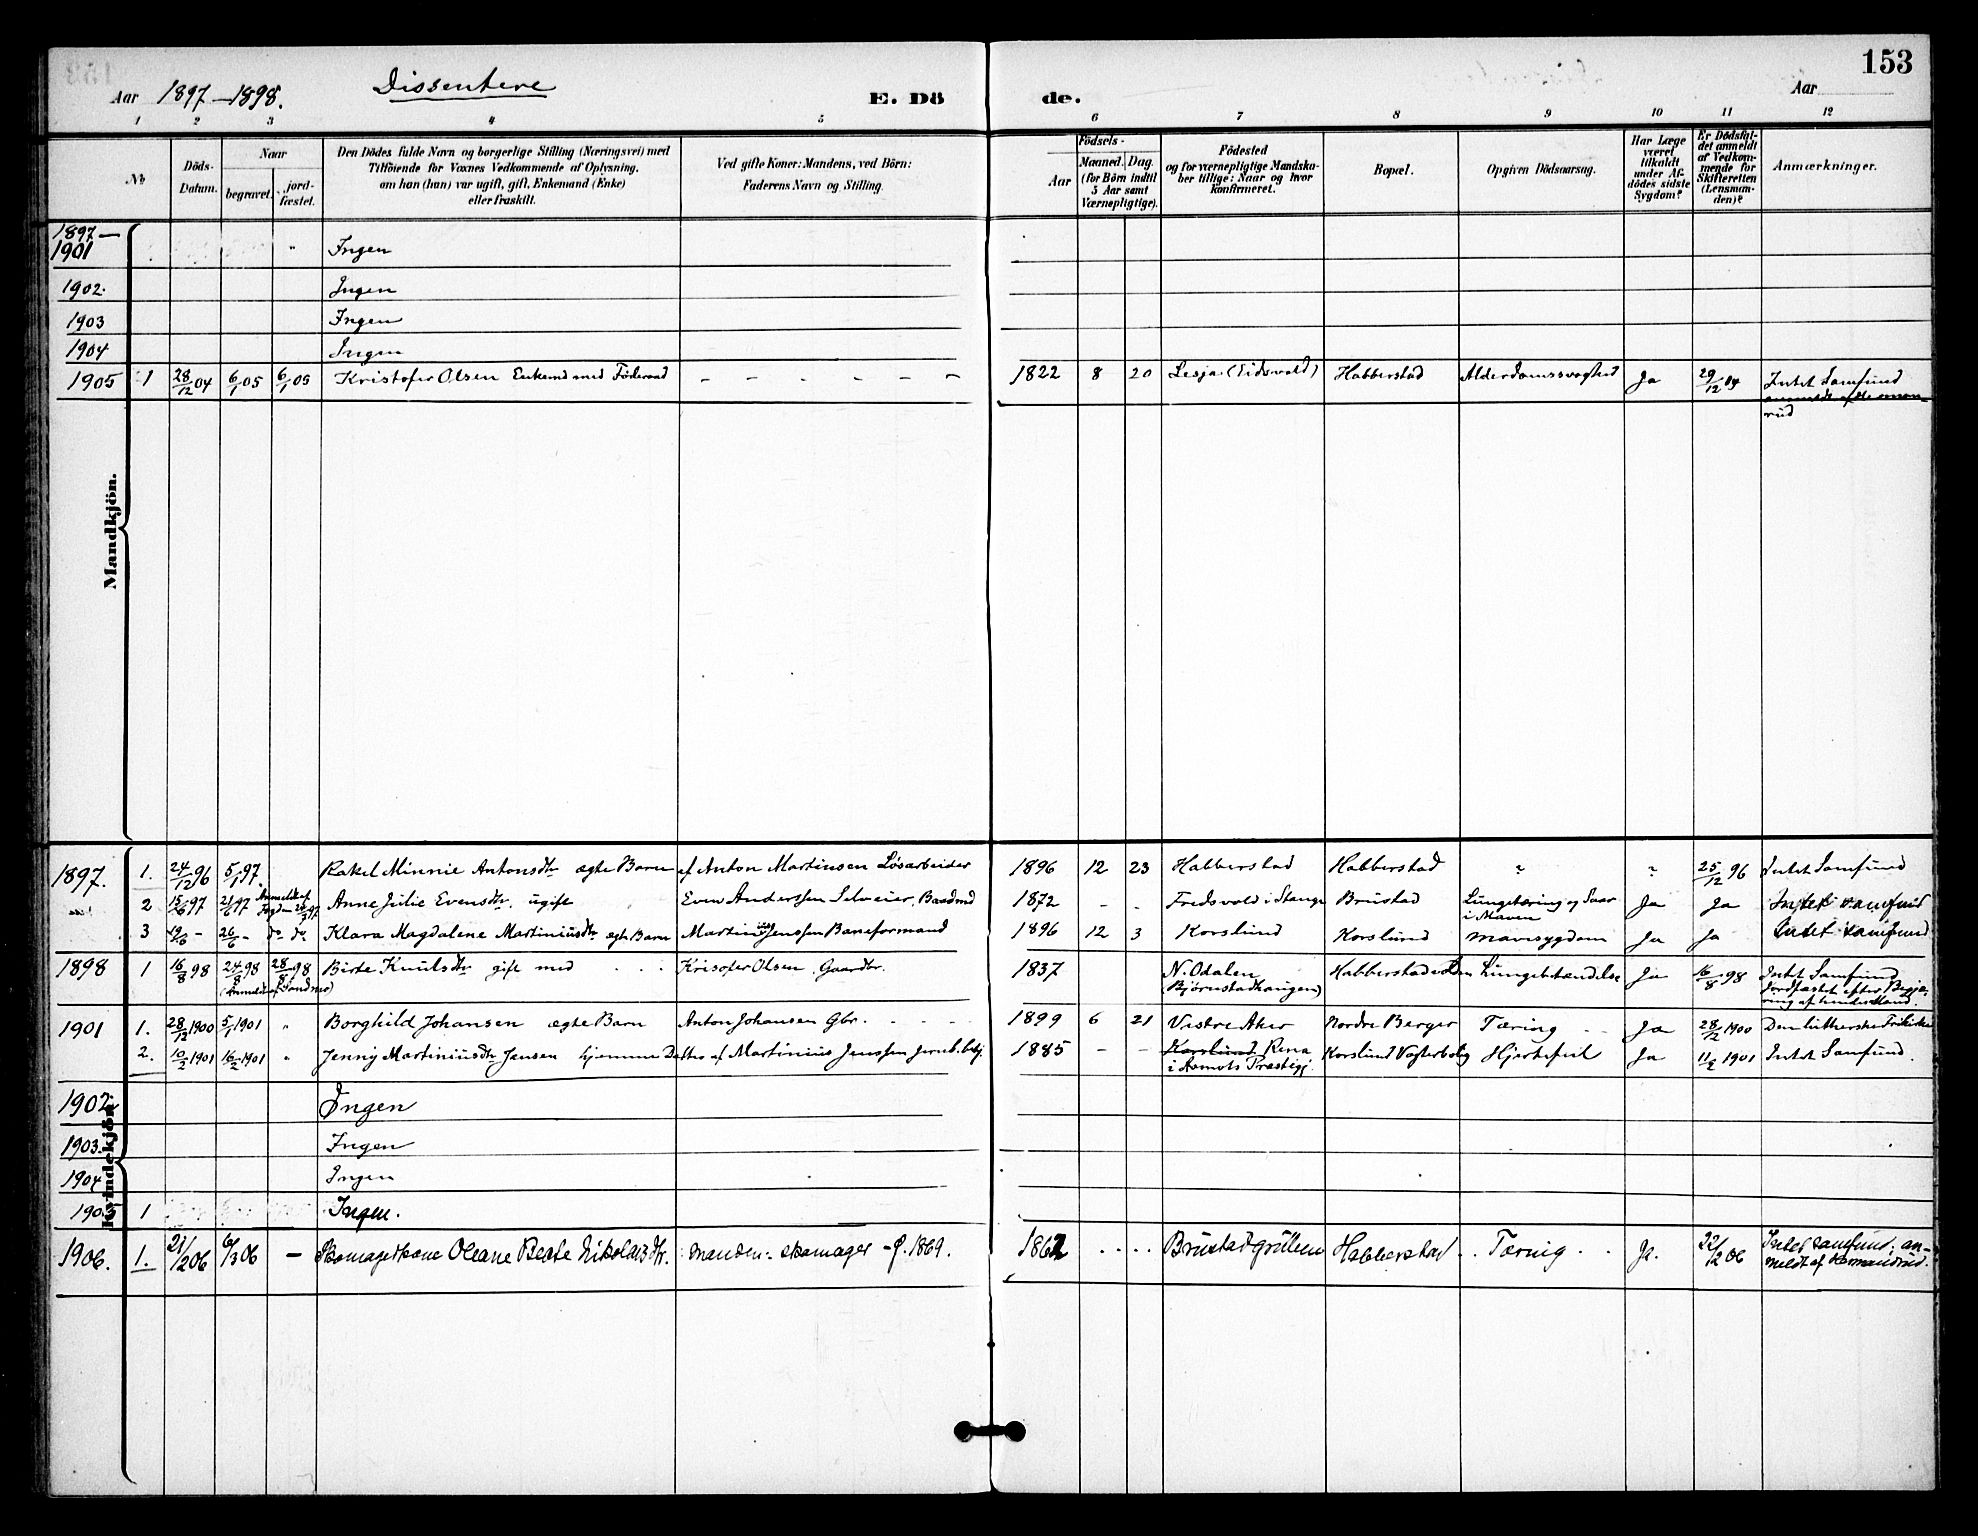 153
Aar 1897–1898. Dissentere E. Dö de. Aar
1 2 3 4 5 6 7 8 9 10 11 12
№
Döds-Datum.
Naar
begravet.
jord-fæstet.
Den Dödes fulde Navn og borgerlige Stilling (Næringsvei) med
Tilföiende for Voxnes Vedkommende af Oplysning,
om han (hun) var ugift, gift, Enkemand (Enke)
eller fraskilt.
Ved gifte Koner: Mandens, ved Börn:
Faderens Navn og Stilling.
Födsels-
Aar
Maaned. Dag.
(for Börn indtil
5 Aar samt
Værnepligtige).
Födested
og for værnepligtige Mandska-
ber tillige: Naar og hvor
konfirmeret.
Bopæl.
Opgiven Dödsaarsag.
Har Læge
været
tilkaldt
under Af-
dödes sidste
Sygdom?
Er Dödsfal-
det anmeldt
af Vedkom-
mende for
Skifteretten
(Lensman-
den)?
Anmærkninger.
Mandkjön.
1897–
1901 " Ingen
1902. Ingen
1903 Ingen
1904 Ingen
1905 1 28/12 04 6/1 05 6/1 05 Kristofer Olsen Enkemd med Föderaad – – – – – – 1822 8 20 Lesja (Eidsvold) Habberstad Alderdomssvaghed Ja 29/12 04 Intet Samfund
anmeldt af
rud
Kvindekjön.
1897. 1. 24/12 96 5/1 97. Rakel Minnie Antonsdtr ægte Barn af Anton Martinsen Løsarbeider 1896 12 23 Habberstad Habberstad " " 25/12 96 Intet Samfund
2 15/6 97 21/6 97 Anmeldt af Anne Julie Evensdtr. ugift Even Anderssen Selveier, Baadsnd 1872 - - Fredsvold i Stange Brustad Lungetæring og Saar
i Maven Ja Ja Intet Samfund
3 19/6 - 26/6 - do do Klara Magdalene Martiniusdtr ægte Barn Martinius Jenssen Baneformand 1896 12 3 Korslund Korslund mavesygdom Ja Ja Intet Samfund
1898 1 16/8 98 24/8 98 28/8 98 Birte Knutsdtr gift med . . . Krisofer Olsen Gaardbr. 1837 N. Odalen
(Bjørnstadhaugen) Habberstadvolden Lungebetændelse Ja 16/8 98 Intet Samfund
Jordfæstet efter Begjæ-
ring af hendes Mand.
1901 1. 28/12 1900 5/1 1901 " Borghild Johansen ægte Barn Anton Johansen Gbr. 1899 6 21 Vestre Aker Nordre Berger Tæring Ja 28/12 1900 Den lutherske Frikirke
2. 10/2 1901 16/2 1901 " Jenny Martiniusdtr Jensen hjemme Datter af Martinius Jenssen Jernb.betj. 1885 - - Korslund Rena
i Aamots Præstegj. Korslund Vogterbolig Hjertefeil Ja 11/2 1901 Intet Samfund.
1902 Ingen
1903. Ingen
1904 Ingen
1905 1 Ingen.
1906. 1. 21/2 06 6/3 06 – Skomagerkone Oleane Beate Nikolais dtr. manden: skomager – f. 1869. 1862 .... Brustadgrutten Habberstad Tæring Ja. 22/12 06 Intet samfund; an-
meldt af Hermandrud.